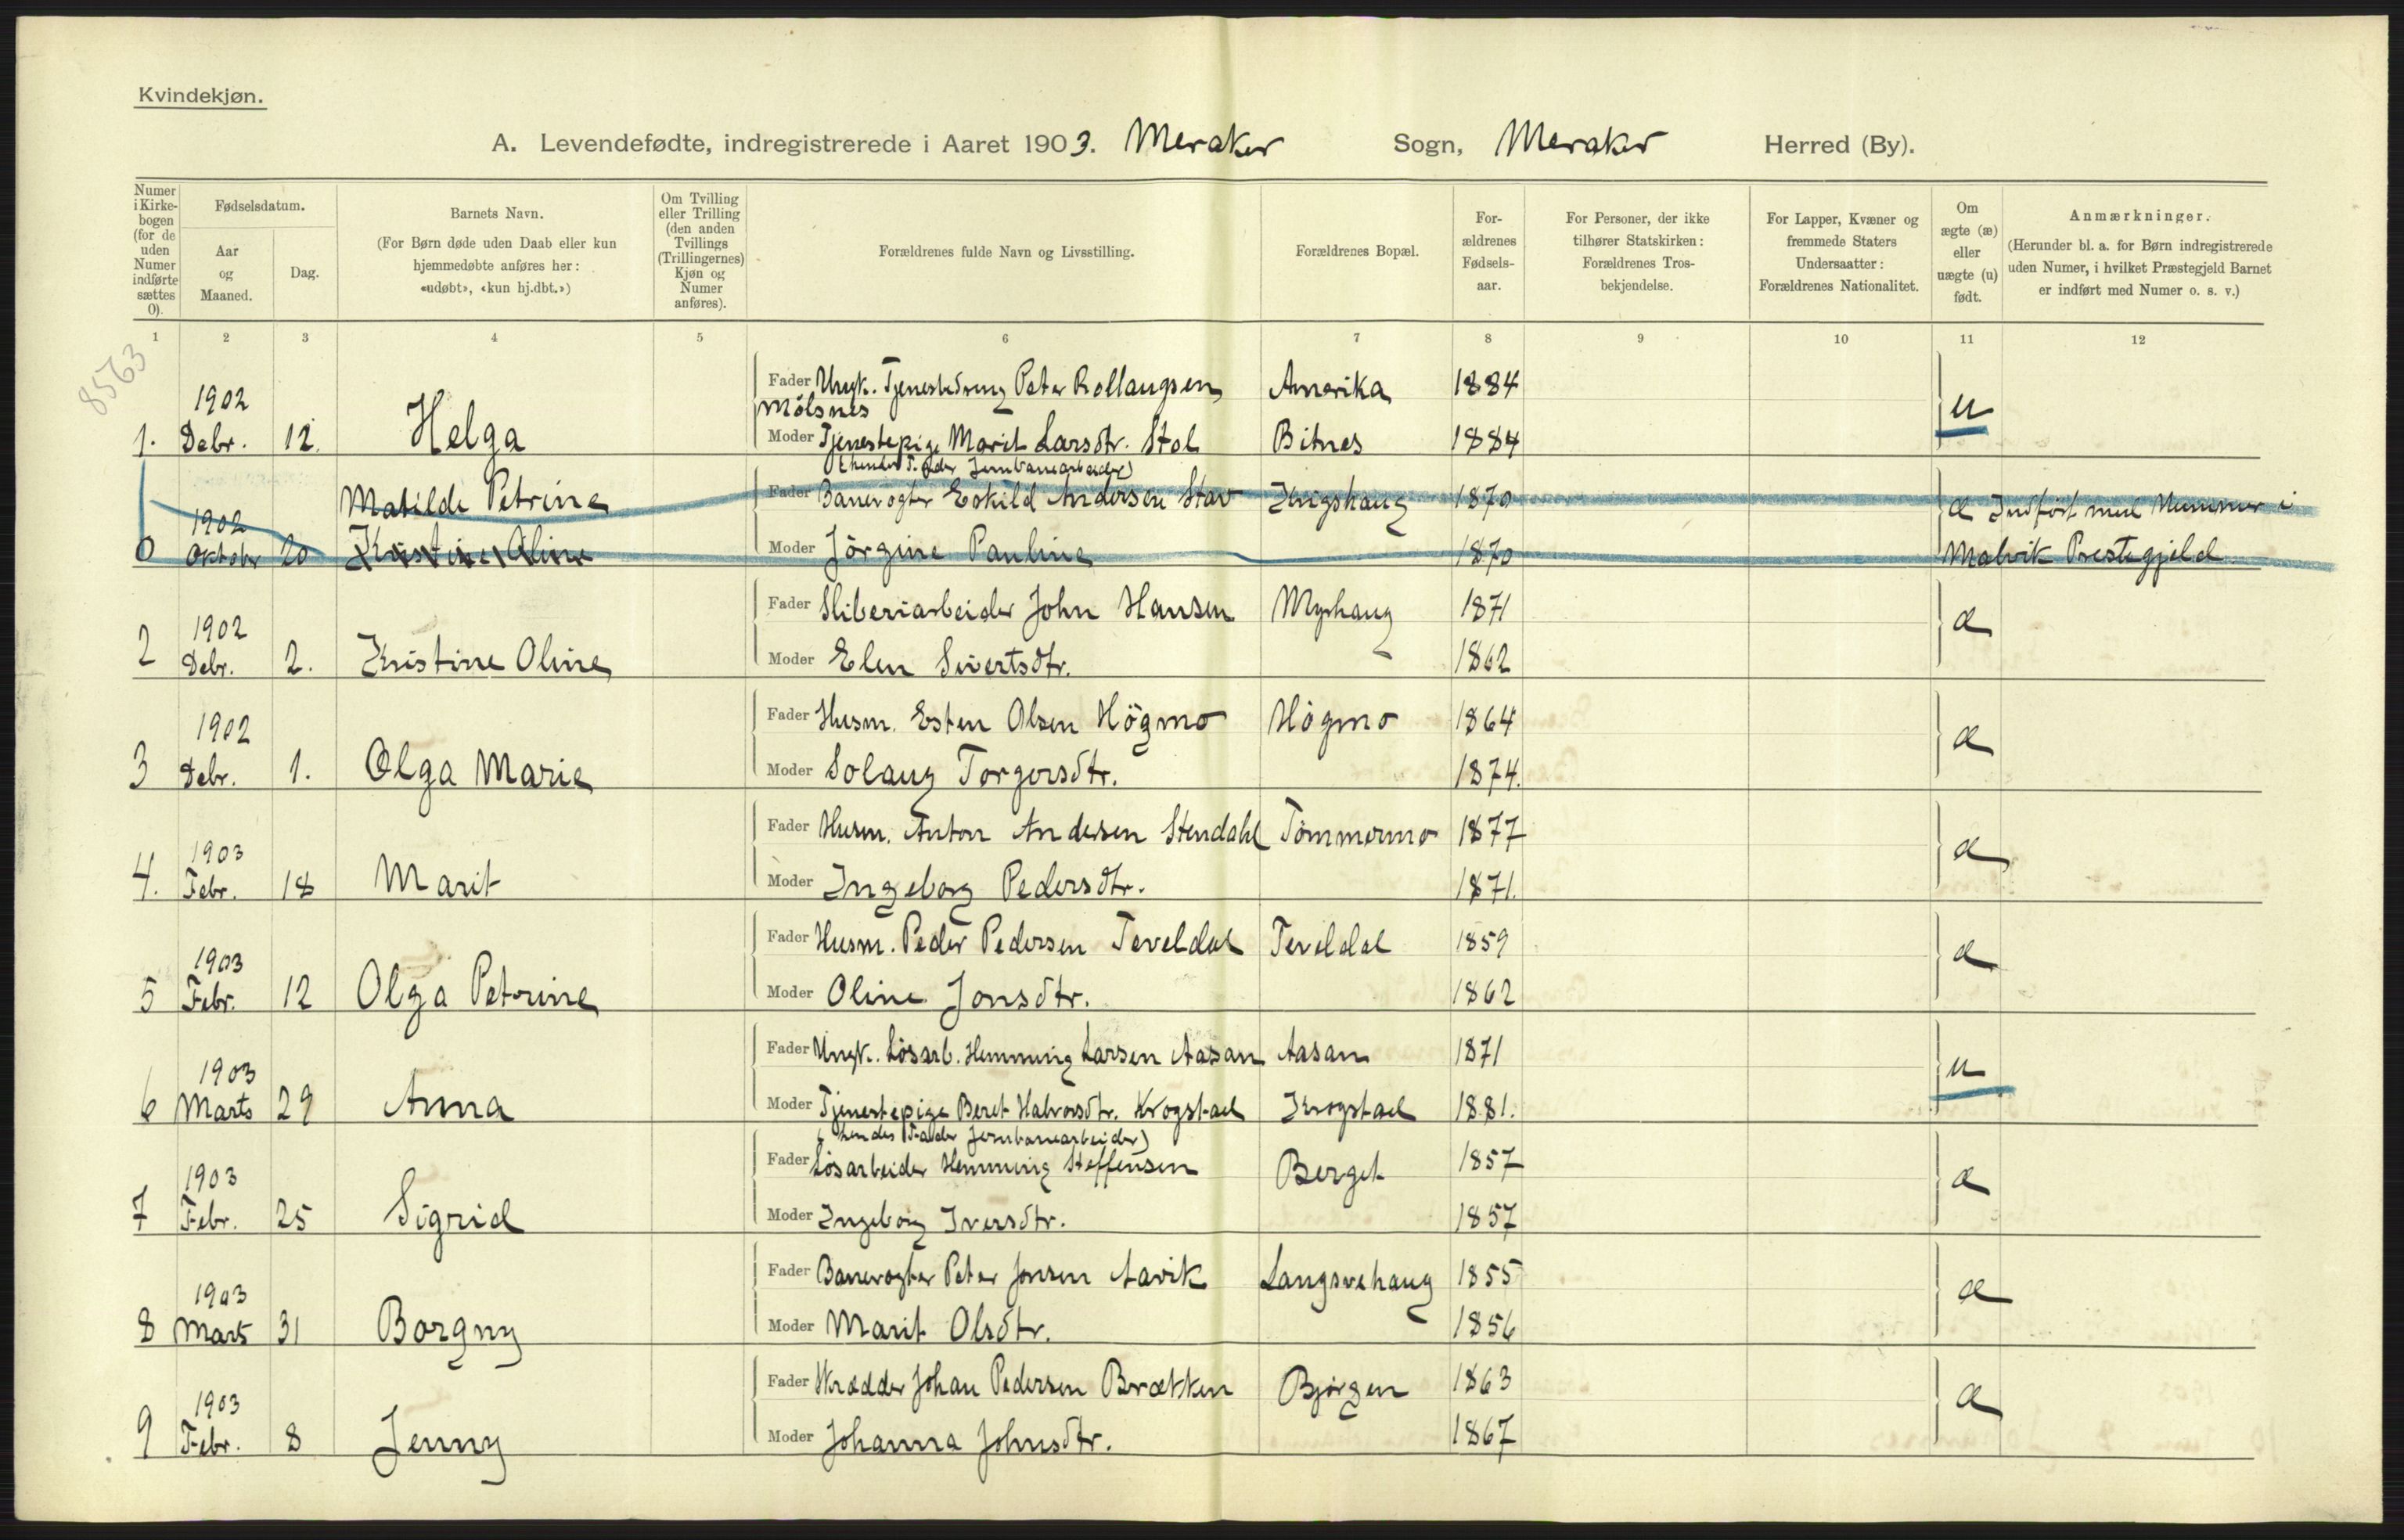 Kvindekjøn.
A. Levendefødte, indregistrerede i Aaret 1903. Meraker Sogn, Meraker Herred (By).
Numer i Kirkebogen (for de uden Numer indførte sættes 0).
Fødselsdatum.
Aar og Maaned.
Dag.
Barnets Navn.
(For Børn døde uden Daab eller kun hjemmedøbte anføres her: «udøbt», «kun hj.dbt.»)
Om Tvilling eller Trilling (den anden Tvillings (Trillingernes) Kjøn og Numer anføres).
Forældrenes fulde Navn og Livsstilling.
Forældrenes Bopæl.
Forældrenes Fødselsaar.
For Personer, der ikke tilhører Statskirken: Forældrenes Trosbekjendelse.
For Lapper, Kvæner og fremmede Staters Undersaatter: Forældrenes Nationalitet.
Om ægte (æ) eller uægte (u) født.
Anmærkninger.
(Herunder bl. a. for Børn indregistrerede uden Numer, i hvilket Præstegjeld Barnet er indført med Numer o. s. v.)
1 2 3 4 5 6 7 8 9 10 11 12
8563
Fader Ungk. Tjenestedreng Peter Rollaugsen Amerika 1884
Mölsnes
1902 u
1. Debr. 12. Helga Moder Tjenestepige Marit Larsdtr. Stol Bitnes 1884
(hendes Fader Jernbanearbeider)
Matilde Petrine Fader Banevogter Eskild Andersen Stav Krigshaug 1870 æ Indført med Nummer i
1902
0 Oktober 20 Kristine Oline Moder Jörgine Pauline 1870 Malvik Prestegjeld
Fader Sliberiarbeider John Hansen Myrhaug 1871 æ
1902
2 Debr. 2. Kristine Oline Moder Elen Sivertsdtr. 1862
Fader Husm. Esten Olsen Högmo Högmo 1864 æ
1902
3 Debr. 1. Olga Marie Moder Solaug Torgersdtr. 1874.
Fader Husm. Anton Andersen Stendahl Tömmermo 1877 æ
1903
4. Febr. 18 Marit Moder Ingeborg Pedersdtr. 1871.
Fader Husm. Peder Pedersen Teveldal Teveldal 1859 æ
1903
5 Febr. 12 Olga Petrine Moder Oline Jonsdtr. 1862
Fader Ungk. Lösarb. Hemming Larsen Aasan Aasan 1871 u
1903
6 Marts 29 Anna Moder Tjenestepige Beret Halvorsdtr. Krogstad Krogstad 1881.
(hendes Fader Jernbanearbeider)
Fader Lösarbeider Hemming Steffensen Berget 1857 æ
1903
7 Febr. 25 Sigrid Moder Ingeborg Iversdtr. 1857
Fader Banevogter Peter Jonsen Aavik Langsvehaug 1855 æ
1903
8 Marts 31 Borgny Moder Marit Olsdtr. 1856
Fader Skrædder Johan Pedersen Brætten Björgen 1863 æ
1903
9 Febr. 8 Jenny Moder Johanna Johnsdtr. 1867